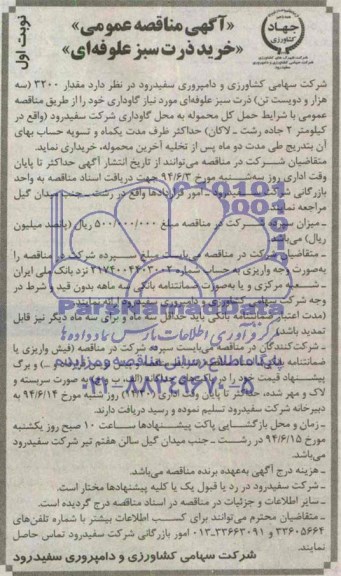 نوبت اول
«آگهی مناقصه عمومی»
«خرید ذرت سبز علوفه‌ای»
جهاد
کشاورزی
شرکت سهامی کشاورزی و دامپروری سفیدرود در نظر دارد مقدار ۳۲۰۰ (سه
هزار و دویست تن) ذرت سبز علوفه‌ای مورد نیاز گاوداری خود را از طریق مناقصه
عمومی با شرایط حمل کل محموله به محل گاوداری شرکت سفیدرود (واقع در
کیلومتر ۲ جاده رشت ـ لاکان) حداکثر ظرف مدت یکماه و تسویه حساب بهای
آن بتدریج طی مدت دو ماه پس از تخلیه آخرین محموله، خریداری نماید.
متقاضیان شرکت در مناقصه می‌توانند از تاریخ انتشار آگهی حداکثر تا پایان
وقت اداری روز سه‌شنبه مورخ ۹۴/۶/۳ جهت دریافت اسناد مناقصه به واحد
بازرگانی شرکت سفیدرود ـ امور قراردادها واقع در رشت ـ جنب میدان گیل
مراجعه نمایند.
ـ میزان سپرده شرکت در مناقصه مبلغ ۵۰۰/۰۰۰/۰۰۰ ریال (پانصد میلیون
ریال) می‌باشد.
ـ متقاضیان شرکت در مناقصه می‌بایست مبلغ سپرده شرکت در مناقصه را
به‌صورت وجه واریزی به حساب شماره نزد بانک ملی ایران
ـ شعبه مرکزی و یا به‌صورت ضمانتنامه بانکی سه ماهه بدون قید و شرط در
وجه شرکت سهامی کشاورزی و دامپروری سفیدرود ارائه نمایند.
(مدت اعتبار ضمانتنامه بانکی باید حداقل سه ماه و برای سه ماه دیگر نیز قابل
تمدید باشد).
ـ شرکت‌کنندگان در مناقصه می‌بایست سپرده شرکت در مناقصه (فیش واریزی یا
ضمانتنامه بانکی) و برگ
پیشنهاد قیمت خود را در پاکت‌های به صورت سربسته و
لاک و مهر شده، حداکثر تا پایان وقت اداری روز شنبه مورخ ۹۴/۶/۱۴ به
دبیرخانه شرکت سفیدرود تسلیم نموده و رسید دریافت دارند.
ـ زمان و محل بازگشایی پاکت پیشنهادها ساعت ۱۰ صبح روز یکشنبه
مورخ ۹۴/۶/۱۵ در رشت ـ جنب میدان گیل سالن هفتم تیر شرکت سفیدرود
می‌باشد.
ـ هزینه درج آگهی به‌عهده برنده مناقصه می‌باشد.
ـ شرکت سفیدرود در رد یا قبول یک یا کلیه پیشنهادها مختار است.
ـ سایر اطلاعات و جزئیات در مناقصه در اسناد مناقصه درج گردیده است.
ـ متقاضیان محترم می‌توانند برای کسب اطلاعات بیشتر با شماره تلفن‌های
۳۳۶۰۵۶۶۴ و ۳۳۶۶۳۰۹۱-۰۱۳ امور بازرگانی شرکت سفیدرود تماس حاصل
نمایند.
شرکت سهامی کشاورزی و دامپروری سفیدرود
ParsNamadData
مرکز فرآوری اطلاعات پارس نماد داده ها
پایگاه اطلاع رسانی مناقصه و مزایده
۰۲۱-۸۸۳۴۹۶۷۰-۵